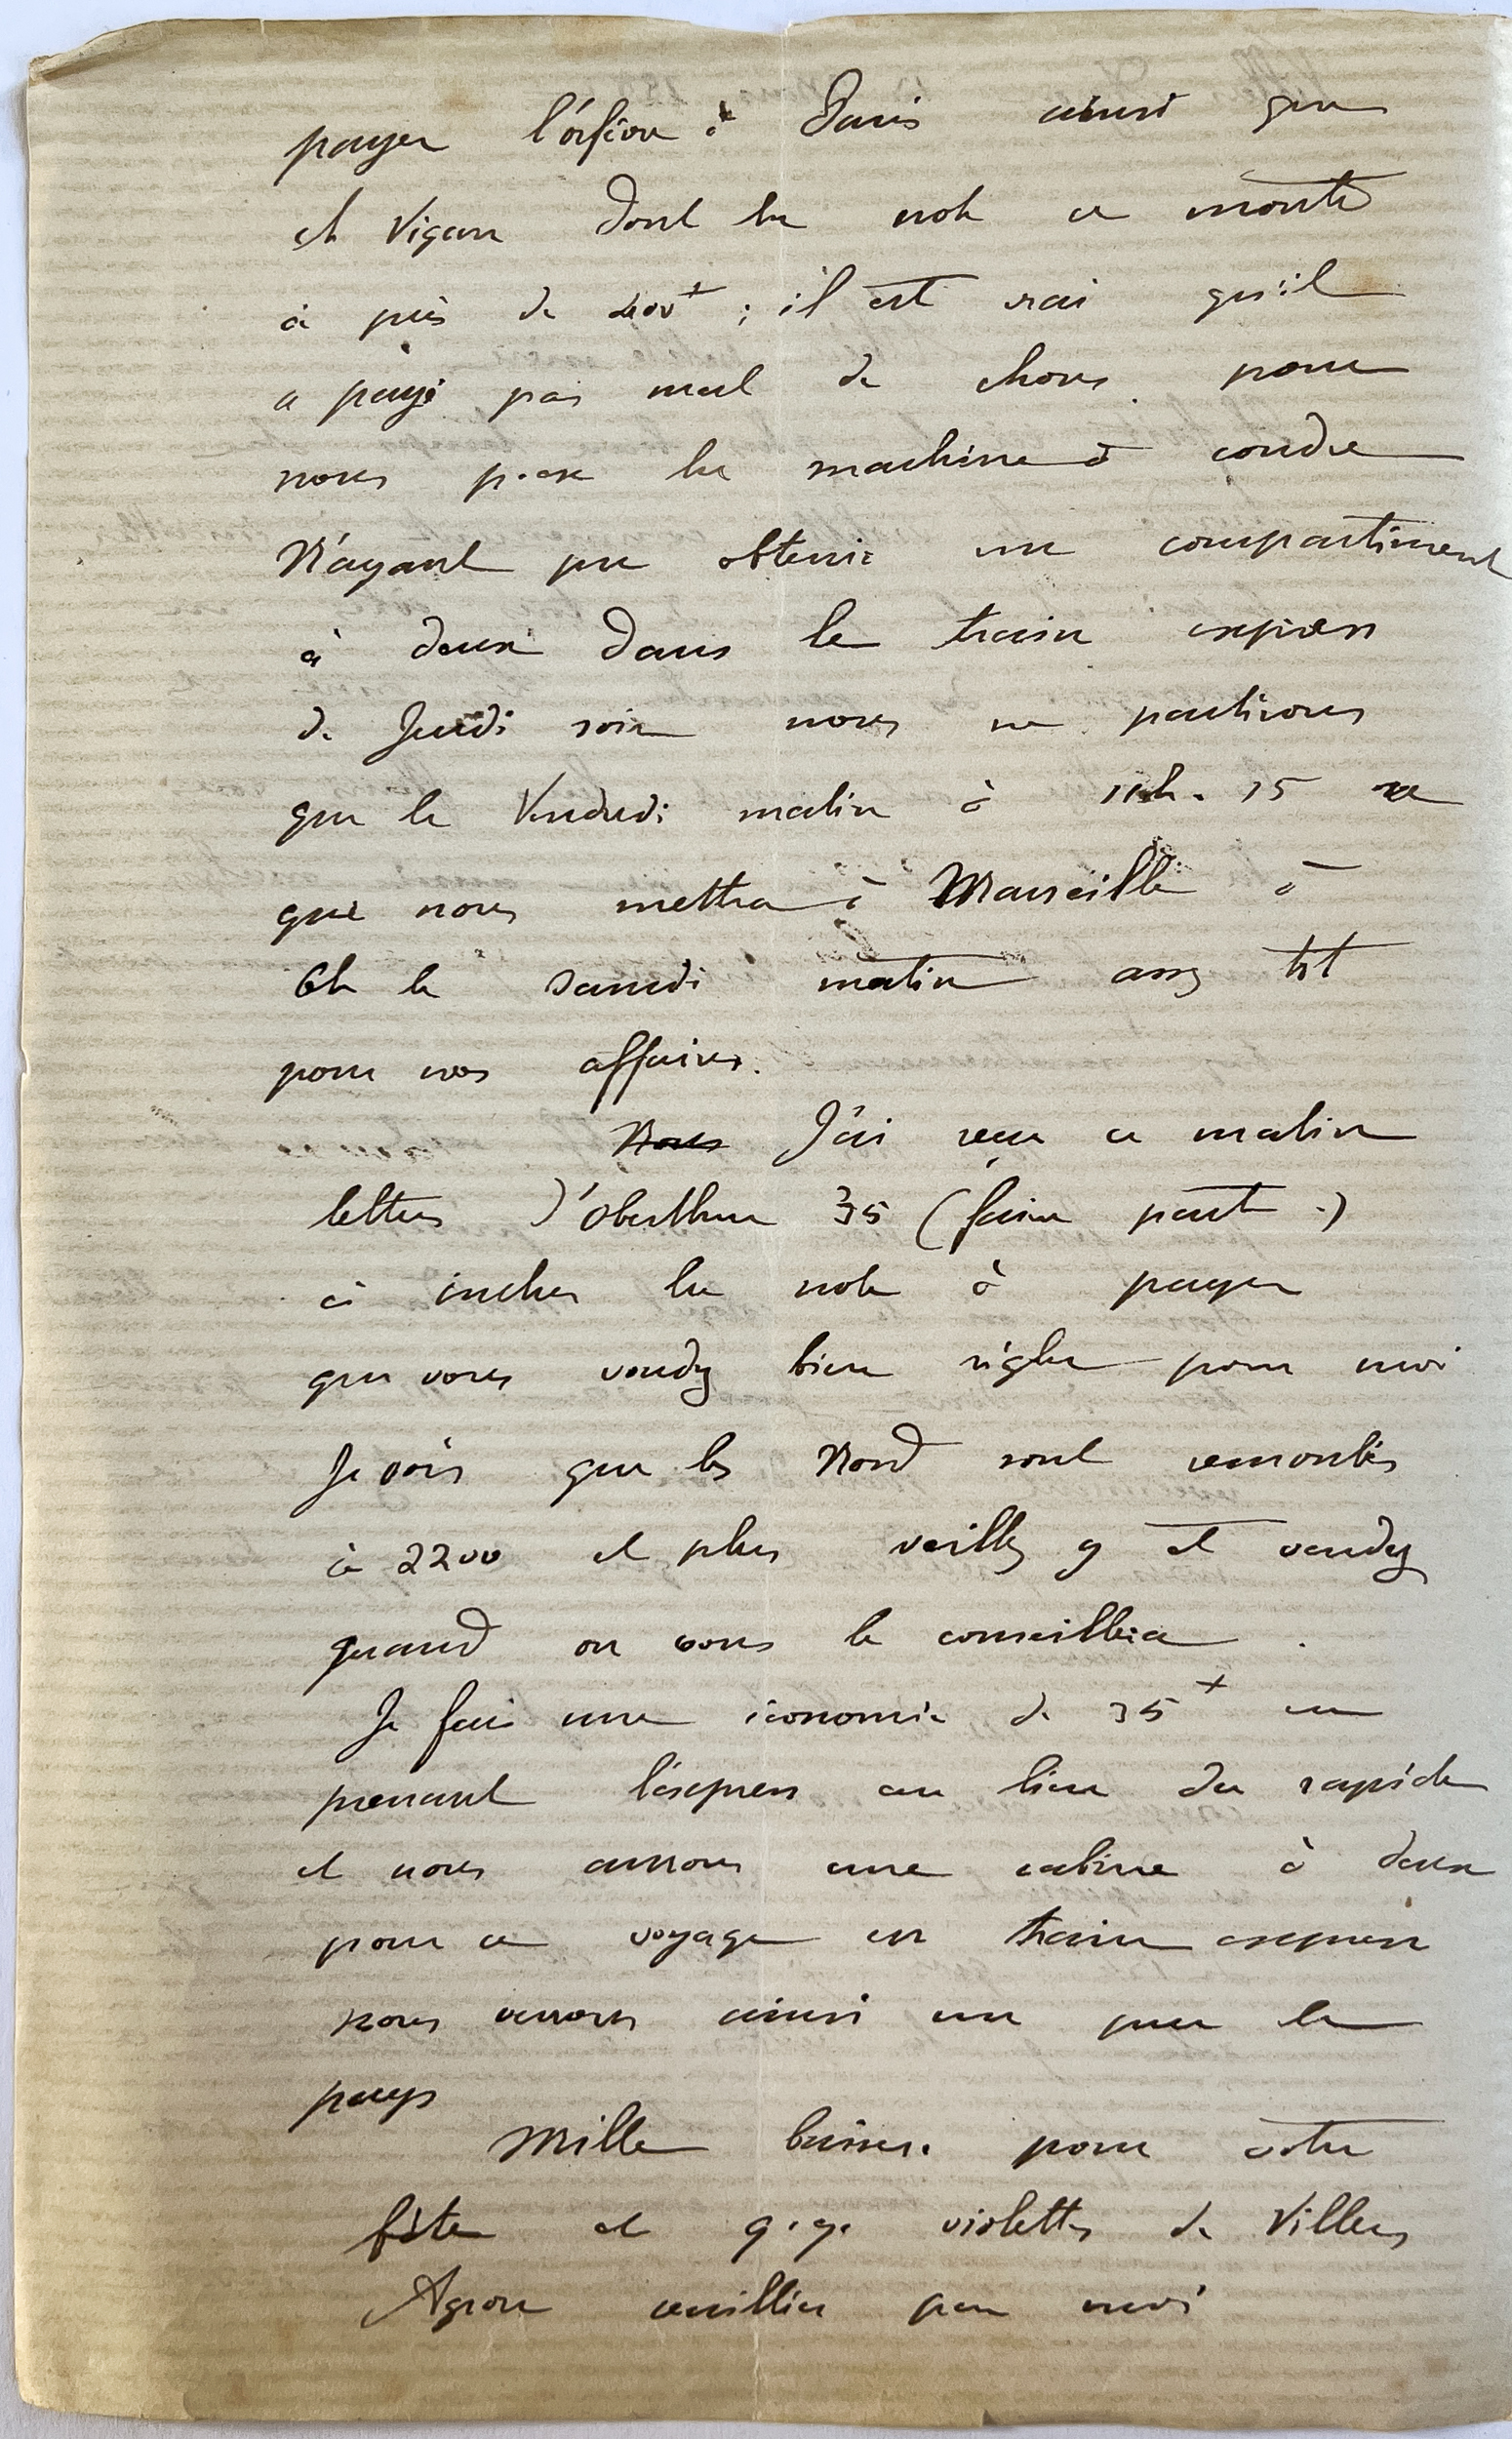 payer à Paris ainsi que
et Vigan dont la note se monte
à près de 400f ; il est vrai qu'il
a payé pas mal de choses pour
nous pour la machine à coudre
N'ayant pu obtenir un compartiment
à deux dans le train express
de Jeudi soir nous ne partirons
que le Vendredi matin à 11h. 15 ce
qui nous mettra à Marseille à
6h le samedi matin assez tôt
pour nos affaires.
Nous J'ai reçu ce matin
lettres d'Oberthur 35 (faire part.)
ci inclus la note à payer
que vous voudrez bien régler pour moi
Je vois que les Nord sont remontés
à 2200 et plus veillez y et vendez
quand on vous le conseillera.
Je fais une économie de 35f en
prenant l'express au lieu du rapide
et nous aurons une cabine à deux
pour ce voyage en train express
nous verrons ainsi un peu le
pays
Mille baisers pour votre
fête et q.q. violettes de Villers
Agron cueillies par moi